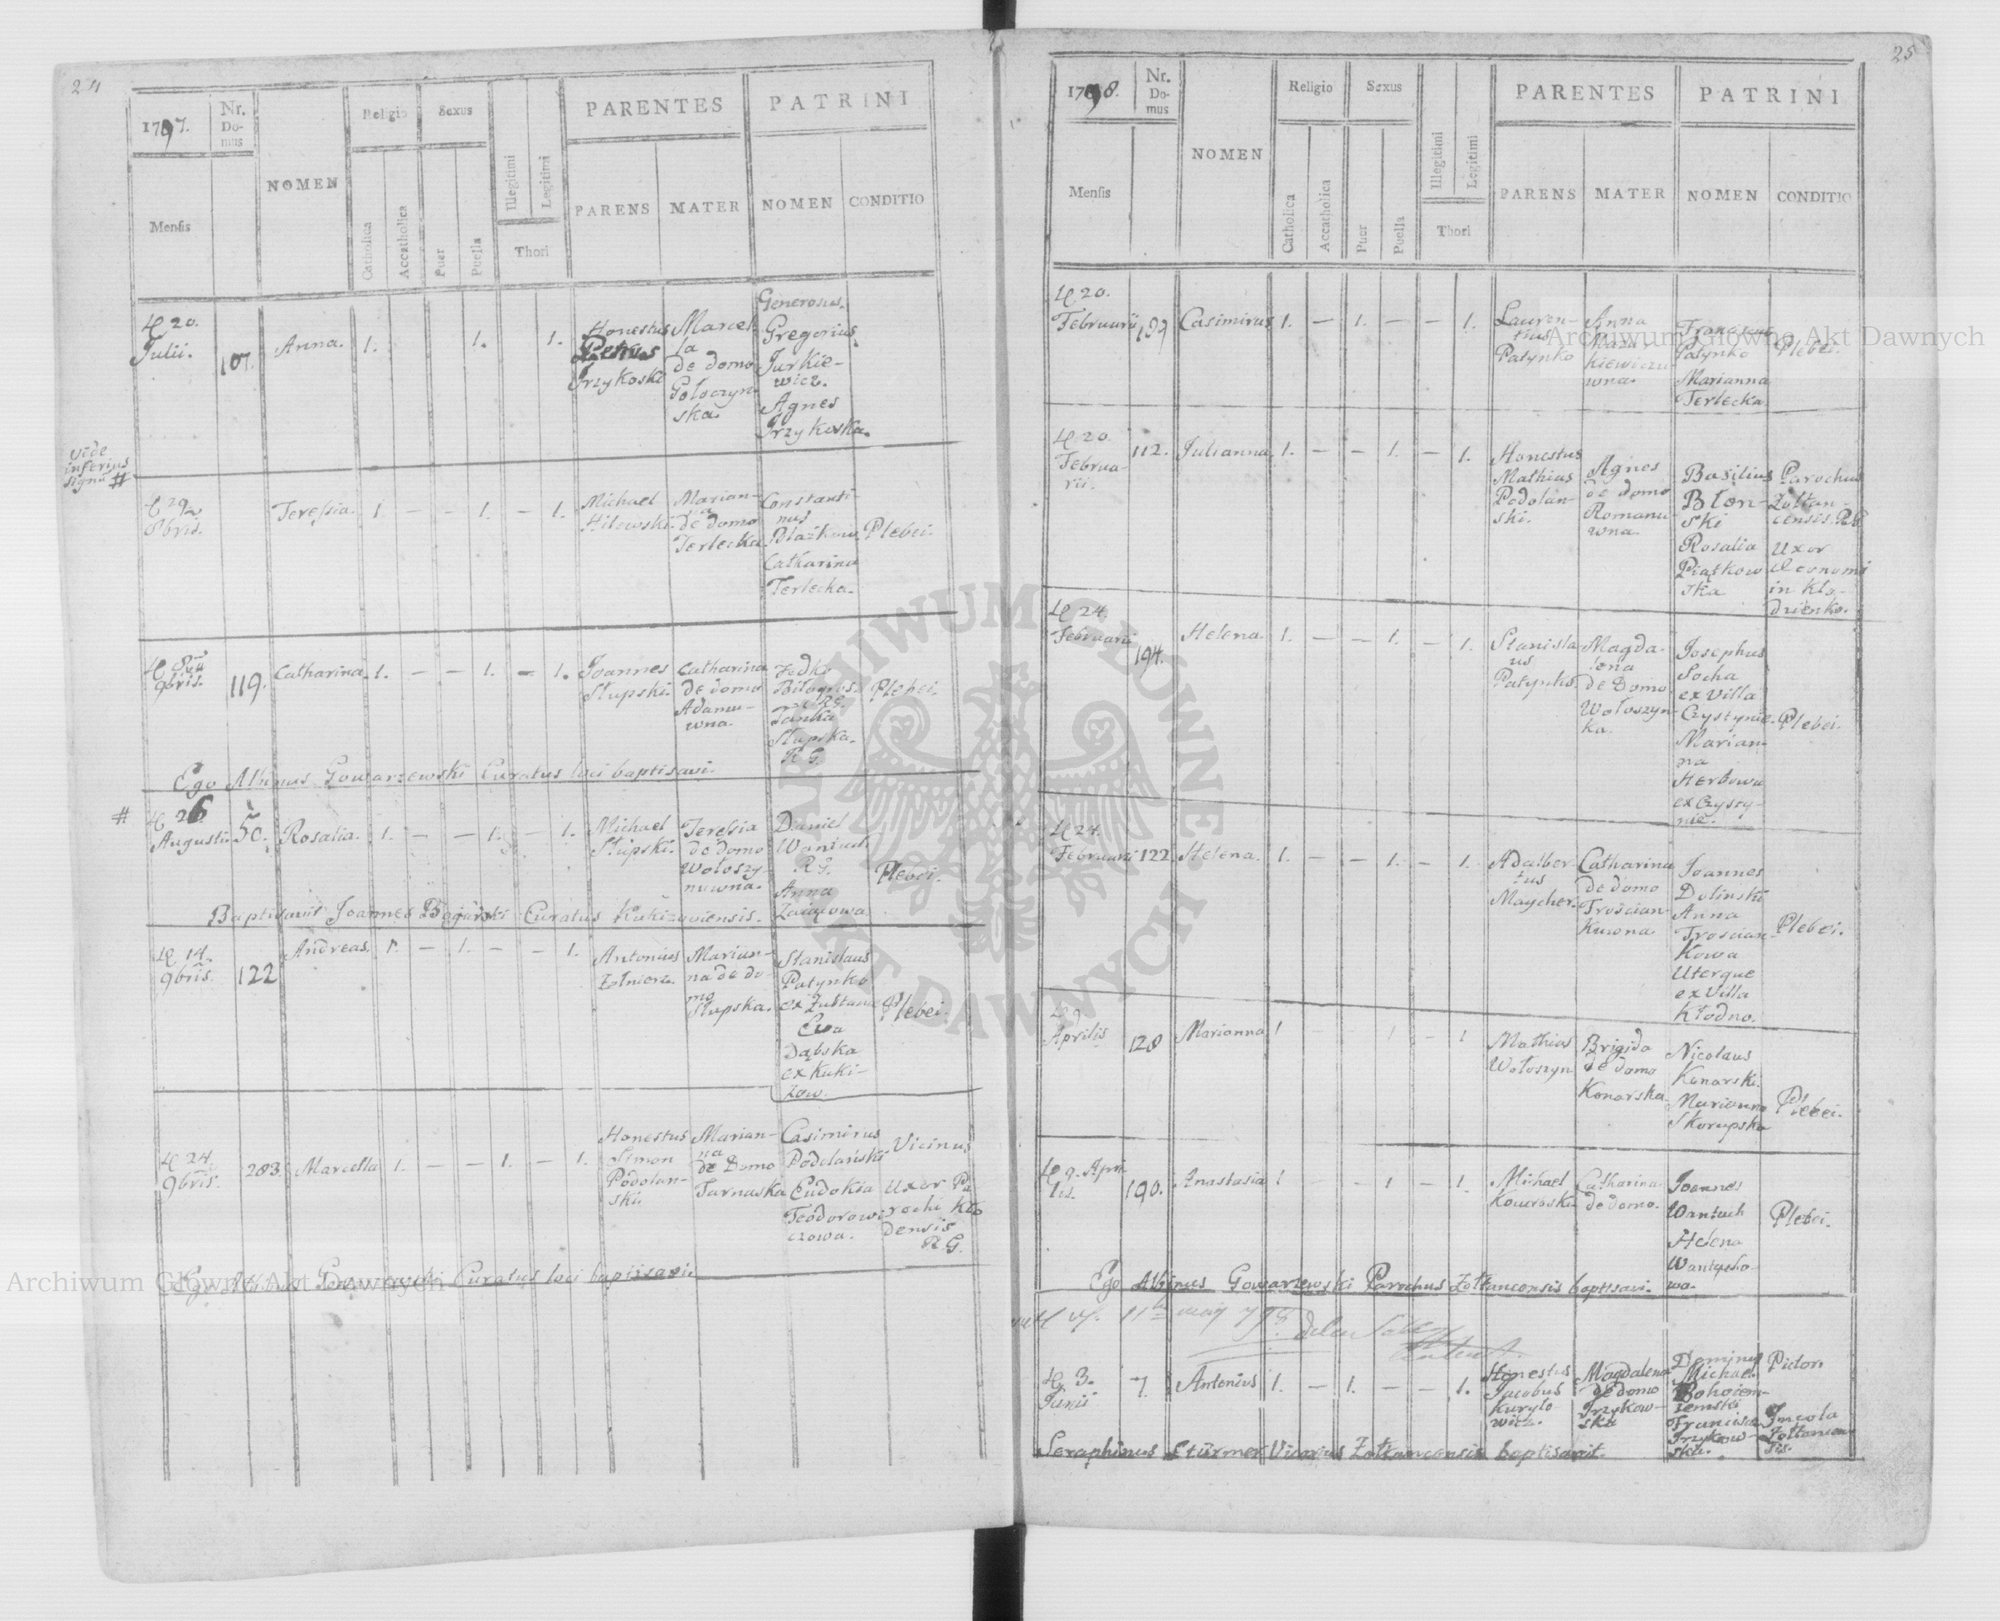 24
1797.
Nr. Do- mus
NOMEN
Religio
Sexus
PARENTES
PATRINI
Mensis
Catholica
Accatholica
Puer
Puella
Illegitimi
Legitimi
Thori
PARENS
MATER
NOMEN
CONDITIO
20. Julii.
107.
Anna.
1.
1.
1.
Honestus
Petrus
Trzykoski
Marcel
la
de domo
Potoczyn
ska.
Generosus.
Gregorius
Jurkie-
wicz.
Agnes
Trzykoska.
vide
inferius
signū #
29
8bris.
Teressia.
1. — — 1. — 1.
Michael
Hilewski.
Marian-
na
de domo
Terlecka.
Constanti-
nus
Catharina
Terlecka.
Plebei.
9bris.
119.
Catharina.
1. — — 1. — 1.
Joannes
Słupski.
Catharina
de domo
Adamu-
wna.
Fedko
Słupska.
R G.
Plebei.
Ego Albinus Gowarzewski Curatus loci baptisavi.
#
26
Augusti.
50.
Rosalia.
1. — — 1. — 1.
Michael
Słupski.
Teressia
de domo
Wołoszy-
nuwna.
Daniel
Wantuch
R G.
Anna
Plebei.
Baptisavit Joannes Curatus Kukizoviensis.
14
9bris.
122
Andreas.
1. — 1. — — 1.
Antonius
Marian-
na de do-
mo
Słupska.
Stanislaus
Patynko
Eva
Dąbska
ex Kuki-
zow.
Plebei.
24
9bris.
203.
Marcella
1. — — 1. — 1.
Honestus
Simon
Podolan-
ski.
Marian-
na
de Domo
Tarnaska
Casimirus
Podolański
Eudokia
Teodorowi
czowa.
Vicinus
Uxor Pa-
rochi Kło
densis
R G.
Ego Albinus Gowarzewski Curatus loci baptisavi.
25
1798.
Nr. Do- mus
NOMEN
Religio
Sexus
PARENTES
PATRINI
Mensis
Catholica
Accatholica
Puer
Puella
Illegitimi
Legitimi
Thori
PARENS
MATER
NOMEN
CONDITIO
20.
Februarii
Casimirus
1. — 1. — — 1.
Lauren-
tius
Patynko
Anna
Patynko
Marianna
Terlecka.
Plebei.
20.
Februa-
rii.
112.
Julianna.
1. — — 1. — 1.
Honestus
Mathias
Podolan-
ski.
Agnes
de domo
Romanu-
wna.
Basilius
Błon-
ski
Rosalia
Piątkow
ska
Parochus
Żołtan-
censis. R G
Uxor
Œconomi
in Kło-
dzienko.
24
Februarii
194.
Helena.
1. — — 1. — 1.
Stanisla
us
Patynko.
Magda-
lena
de Domo
Wołoszyn-
ka.
Josephus
Socha
ex Villa
Czystynie.
Marian-
na
Herbowa
ex Czysty-
nie.
Plebei.
24.
Februarii
122
Helena.
1. — — 1. — 1.
Adalber-
tus
Maycher.
Catharina
de domo
Trościan-
kuwna.
Joannes
Dolinski
Anna
Troscian-
kowa
Uterque
ex Villa
Kłodno.
Plebei.
9
Aprilis
128
Marianna
1 — — 1 — 1
Mathias
Wołoszyn
Brigida
de domo
Konarska.
Nicolaus
Konarski.
Marianna
Skorupska
Plebei.
9. Apri
lis.
190.
Anastasia
1 — — 1 — 1.
Michael
Kowerski.
Catharina.
de domo.
Joannes
Wantuch
Helena
Wantucho-
wa.
Plebei.
Ego Albinus Gowarzewski Parochus Żołtancensis baptisavi.
11 798
3.
Junii
7.
Antonius
1. — 1. — — 1.
Honestus
Jacobus
Kuryło-
wicz.
Magdalena
de domo
Trzykow-
ska
Dominus
Michael
Bohoten-
zemski
Francisca
Trzykow-
ska.
Pictor.
Incola
Żołtancen
sis.
Seraphinus Stürmer Vicarius Żołtancensis baptisavit.
ARCHIWUM GŁÓWNE AKT DAWNYCH
Archiwum Główne Akt Dawnych
Archiwum Główne Akt Dawnych